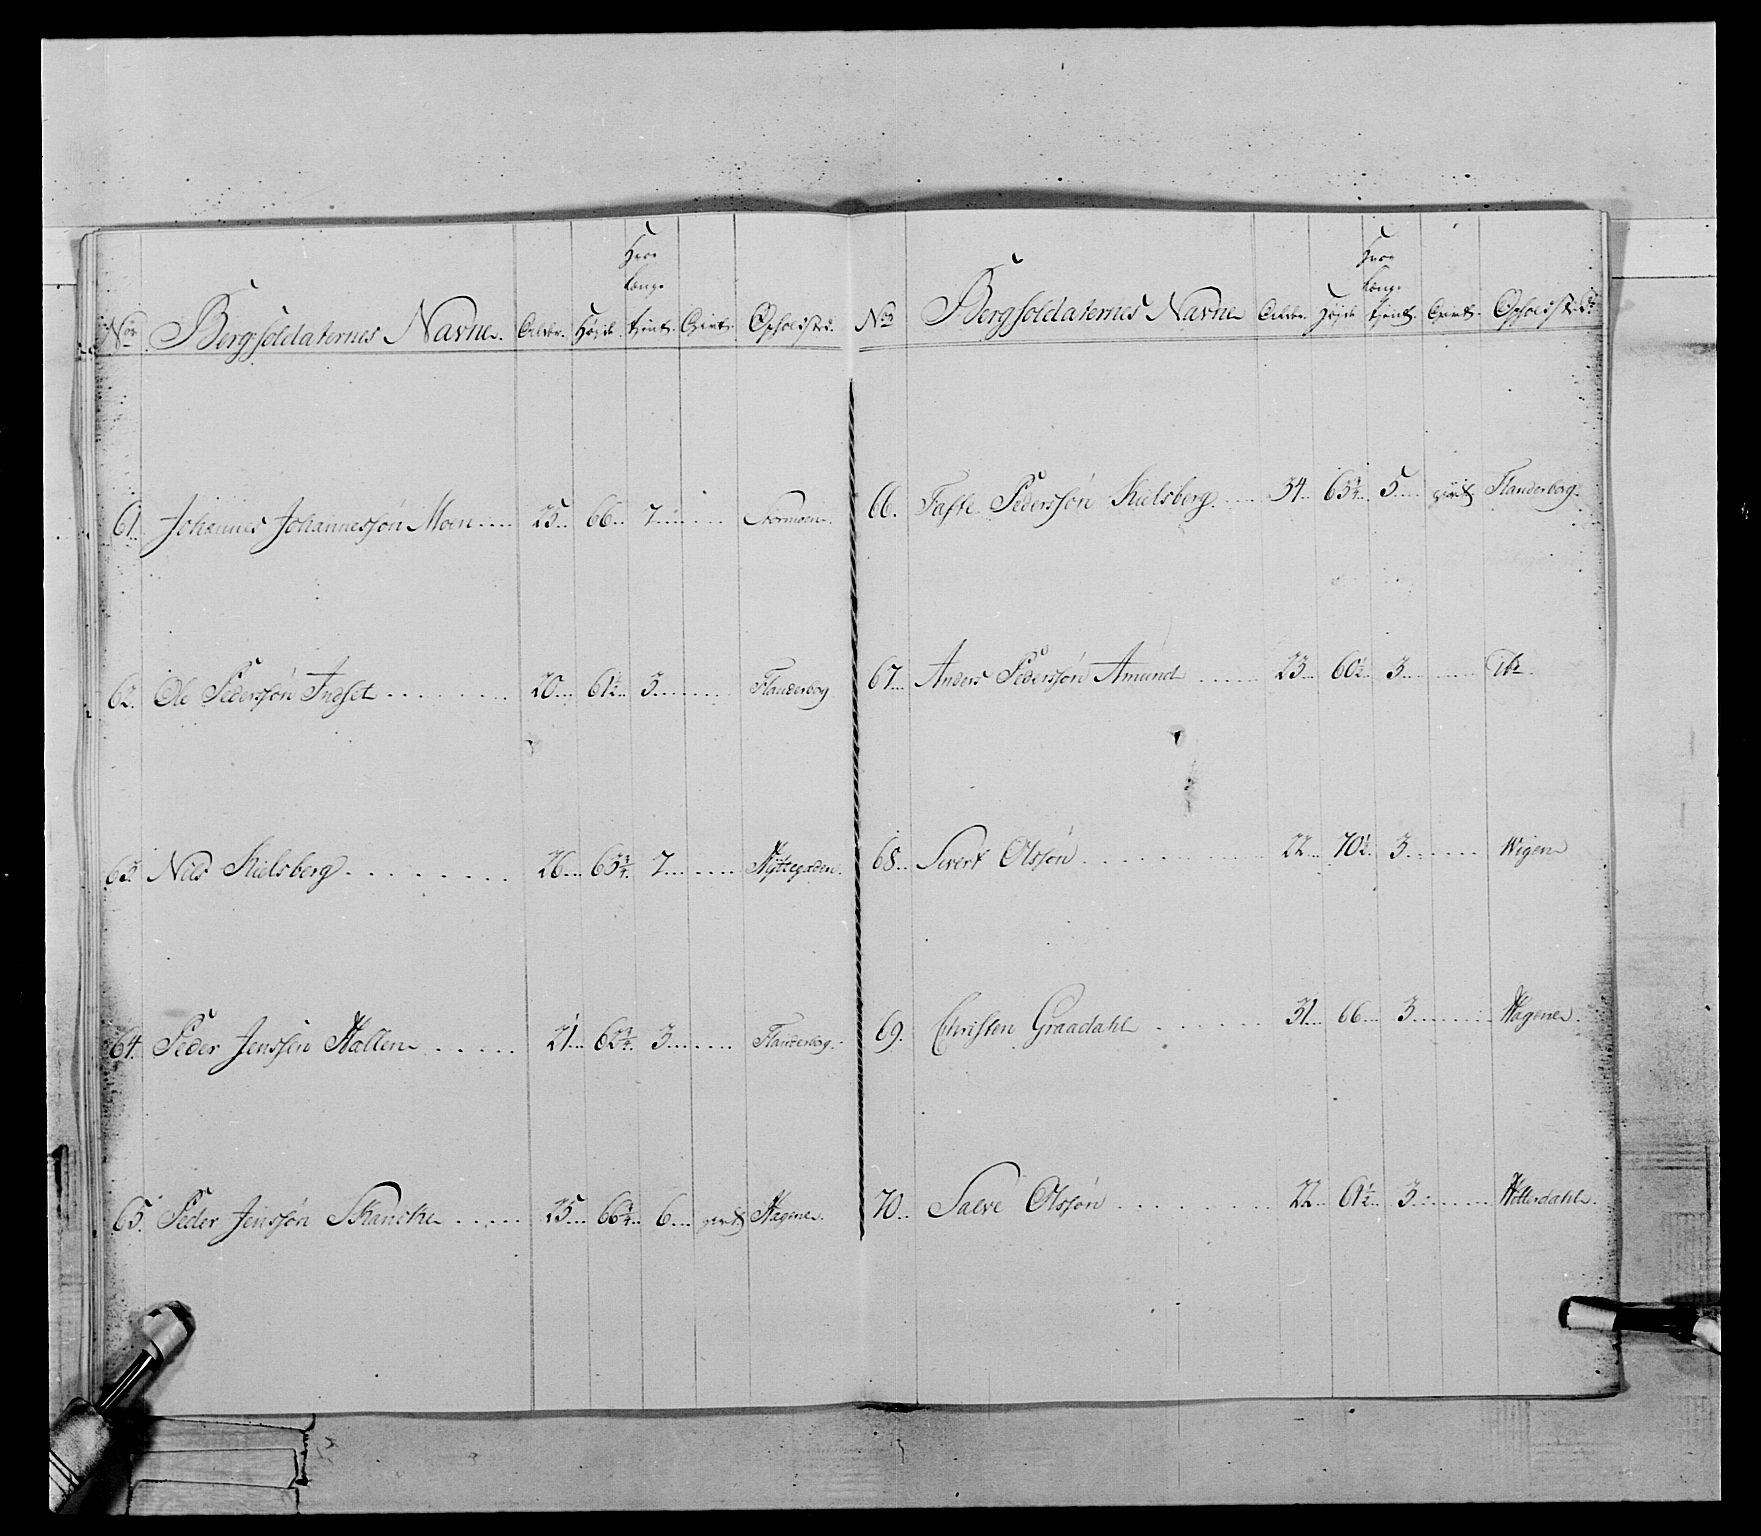 Hvor
længe
No. Bergsoldaternes Navne. Alder. Høyde tjent. Givt. Opholdsted.
61. Johannes Johannessøn Moen 25 66 7 Stormoen
62. Ole Pederssøn Indset 20 61 1/2 3 Flanderborg
63. Nils Kielsberg 26 65 3/4 7 Hyttegaden
64. Peder Jenssen Hallen 21 62 3/4 3 Flanderborg
65. Peder Jenssøn Skancke 25 66 1/4 6 givt Hagene
Hvor
længe
No. Bergsoldaternes Navne Alder. Høyde tjent. Givt. Opholdsted.
66. Faste Pederssøn Kielsberg 34 65 1/4 5 givt Flanderborg
67. Anders Pederssøn Amund 23 60 1/2 3 Ib.
68. Sivert Olssøn 22 70 1/2 3 Wigen
69. Christen Graadahl 31 66 3 Hagene
70. Salve Olssøn 22 61 1/2 3 Hitterdahl